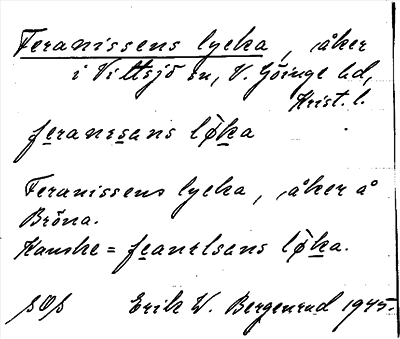 Feranissens lycka, åker
i Vittsjö sn, V. Göinge hd,
Krist. l.
feranisans løka
Feranissens lycka, åker å
Bröna.
Kanske = feanelsans løka.
Erik W. Bergenrud 1945.